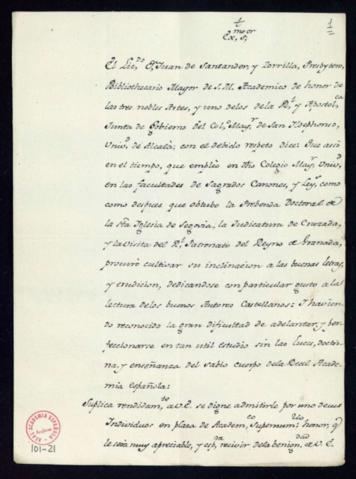 1
Ex.mo S.or
El Lic.do D.n Juan de Santander, y Zorrilla, Presbytero,
Bibliothecario Mayor de S. M. Academico de honor de
las tres nobles Artes, y uno delos de la R.l y Apostol.ca
Junta de Gobierno del Col.o May.r de San Ildephonso,
Univ.d de Alcalà: con el debido respeto dice: Que asi
en el tiempo, que empleò en dho Colegio May.r Univ.d
en las facultades de Sagrados Canones, y Ley.s como
como despues que obtubo la Prebenda Doctoral de
la S.ta Iglesia de Segovia; la Judicatura de Cruzada,
y la Visita del R.l Patronato del Reyno de Granada,
procurò cultivar su inclinacion a las buenas letras,
y erudicion, dedicandose con particular gusto a la
lectura delos buenos Autores Castellanos: Y havien
do reconocido la gran dificultad de adelantar, y per
feccionarse en tan util estudio sin las luces, doctri
na, y enseñanza del sabio cuerpo dela Real Acade
mia Española:
Suplica rendidam.te a V.E. se digne admitirle por uno de sus
Individuos en plaza de Academ.co Supernum.rio: honor, q.e
le serà muy apreciable, y esp.a recivir dela benign.dad de V.E.
REAL ACADEMIA ESPAÑOLA
Archivo
101-21